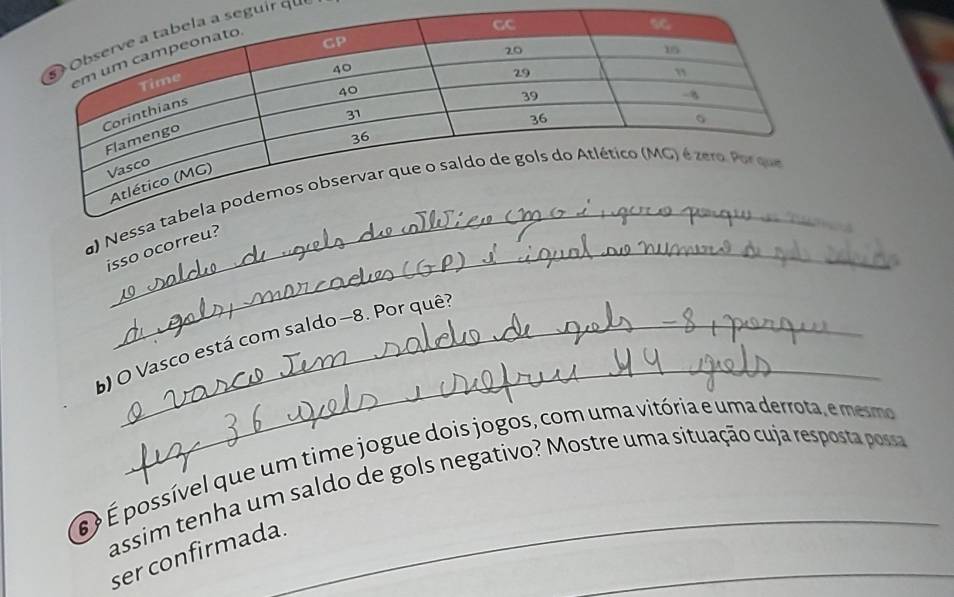 5 Observe a tabela a seguir
em um campeonato.
Time GP GC SG
Corinthians 40 20 20
Flamengo 40 29 11
Vasco 31 39 -8
Atlético (MG) 36 36 0
a) Nessa tabela podemos observar que o saldo de gols do Atlético (MG) é zero. Por que
isso ocorreu?
o saldo de gols do (MG
de gols, marcados (GP) é igual ao numero de
b) O Vasco está com saldo -8. Por quê?
o vasco tem saldo de gols -8, porque
fez 36 gols e 44 gols
6 É possível que um time jogue dois jogos, com uma vitória e uma derrota, e mesmo
assim tenha um saldo de gols negativo? Mostre uma situação cuja resposta possa
ser confirmada.